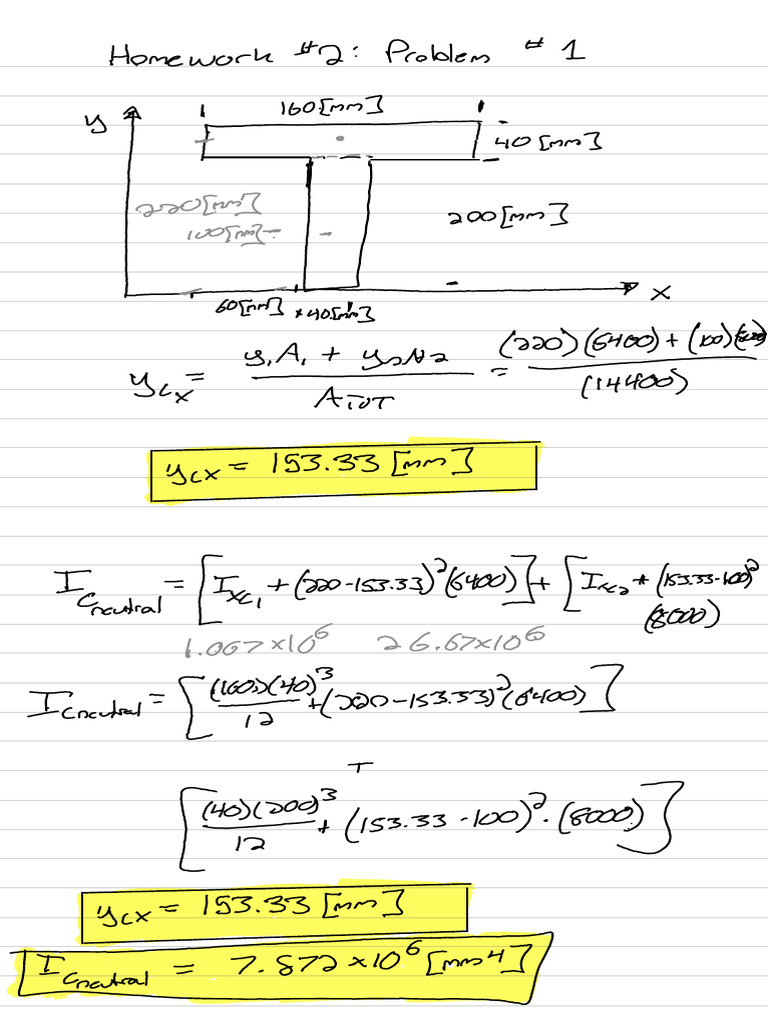 Homework #2: Problem #1
160[mm]
y
40[mm]
220[mm]
200[mm]
100[mm]
x
60[mm]
40[mm]
y_cx = (y₁A₁ + y₂A₂) / A_TOT = ((220)(6400) + (100)(8000)) / (14400)
y_cx = 153.33 [mm]
I_Cneutral = [I_xc₁ + (220-153.33)²(6400)] + [I_xc₂ + (153.33-100)²
(8000)
1.067×10⁶ 26.67×10⁶
I_Cneutral = [(160)(40)³/12 + (220-153.33)²(6400)]
+
[(40)(200)³/12 + (153.33-100)²·(8000)]
y_cx = 153.33 [mm]
I_Cneutral = 7.872×10⁶ [mm⁴]